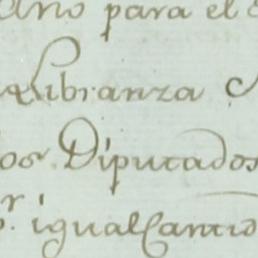 Año para el
Libranza
os Diputados
r. igual Cantid